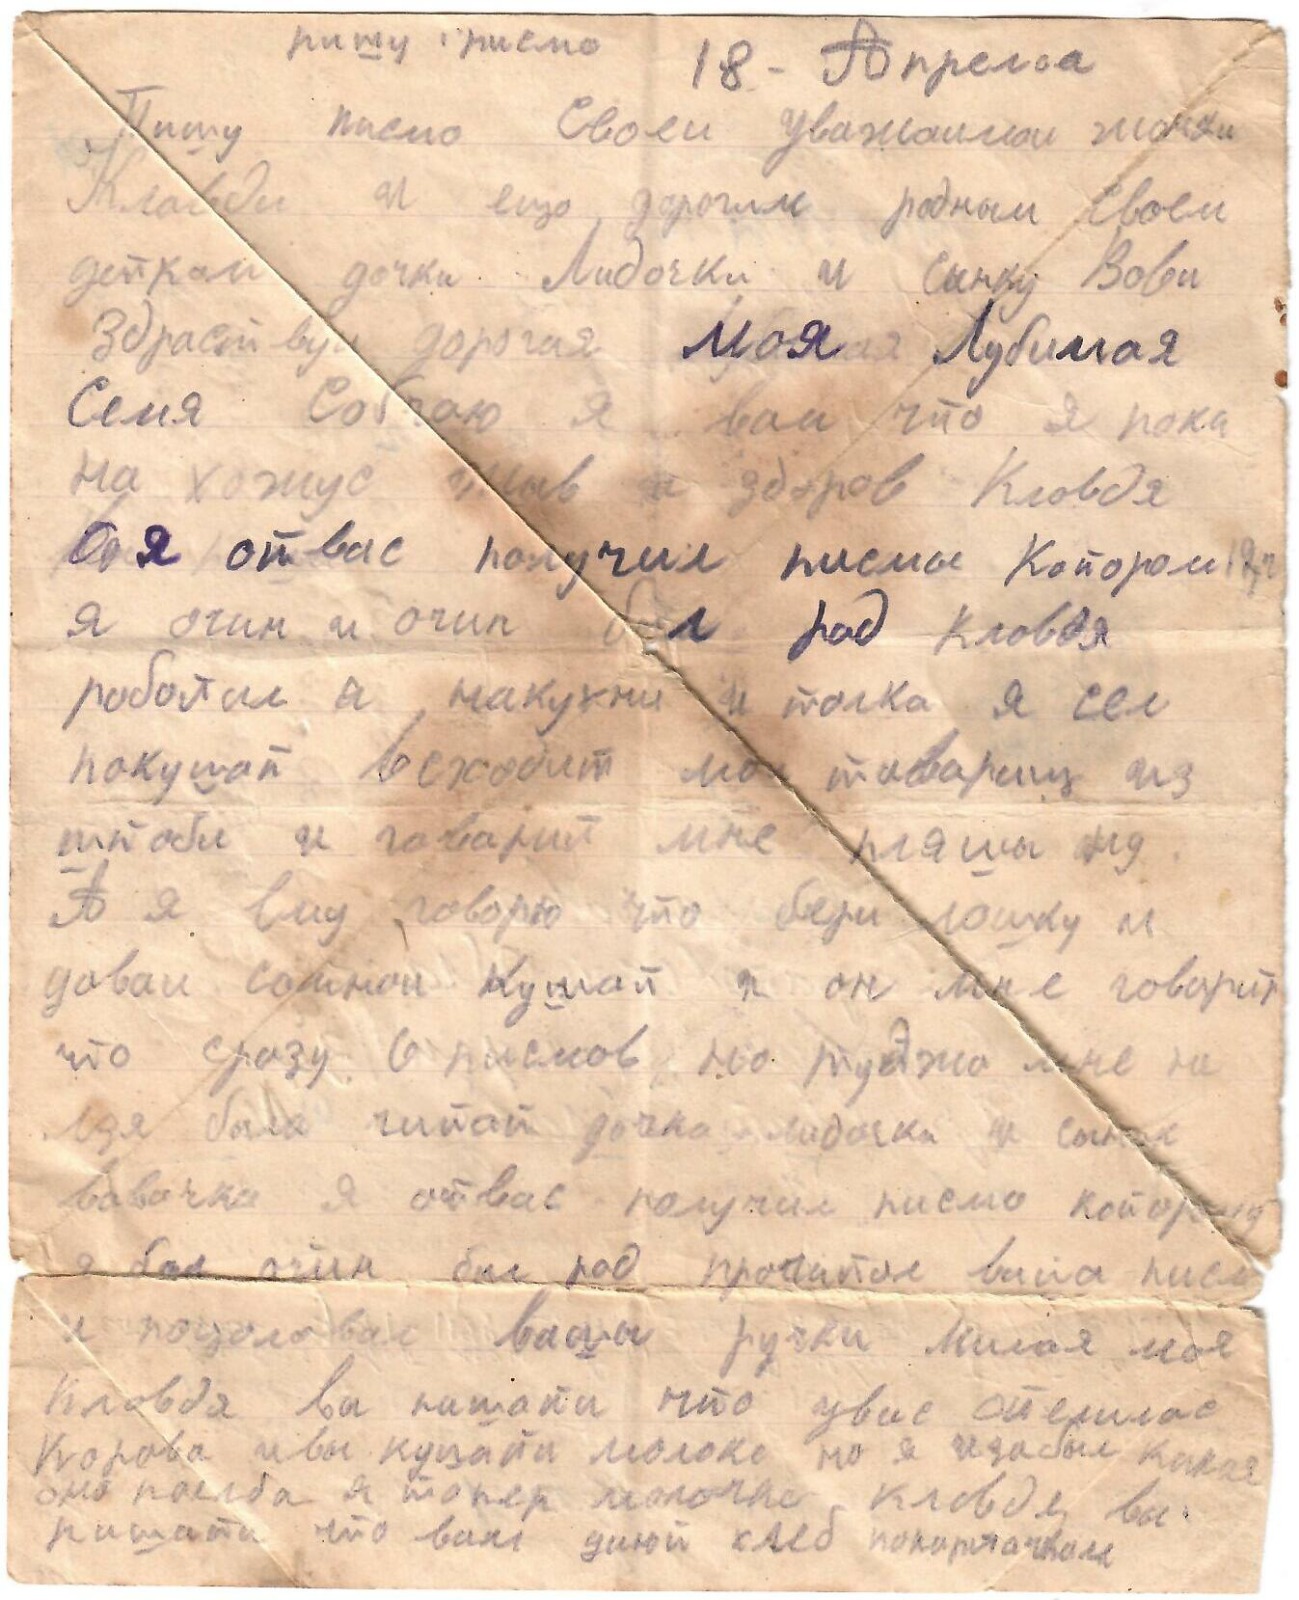 пишу писмо 18 - Апреля
Пишу писмо Своеи уважаимаи жонки
Кловди и ещо дорогим родным своем
деткам дочки Лидочки и сынку Вови
Здраствуи дорогая моя Лубимая
Семя Собчаю я вам что я пока
на хожус жыв и здоров Кловдя
я отвас получил писмо Котором
я очин и очин бл рад Кловдя
работал а на кухни и толка я сел
покушат всходит мои товарищ из
штоби и говарит мне пляшы ну.
А я ему говорю что бери лошку и
доваи сомнои кушат и он мне говарит
что сразу 6 писмов но туджо мне не
лзя было читат дочка лидочка и сынок
вавочка я отвас получил писмо которому
я был очин был рад прочитал ваша писм
и поцоловал вашы ручки Милая моя
Кловдя вы пишати что увас отелилас
Корова ивы кушати молоко но я изабыл какая
оно поелба я топер молочка Кловдя вы
пишати что вам дают хлеб покарточкам